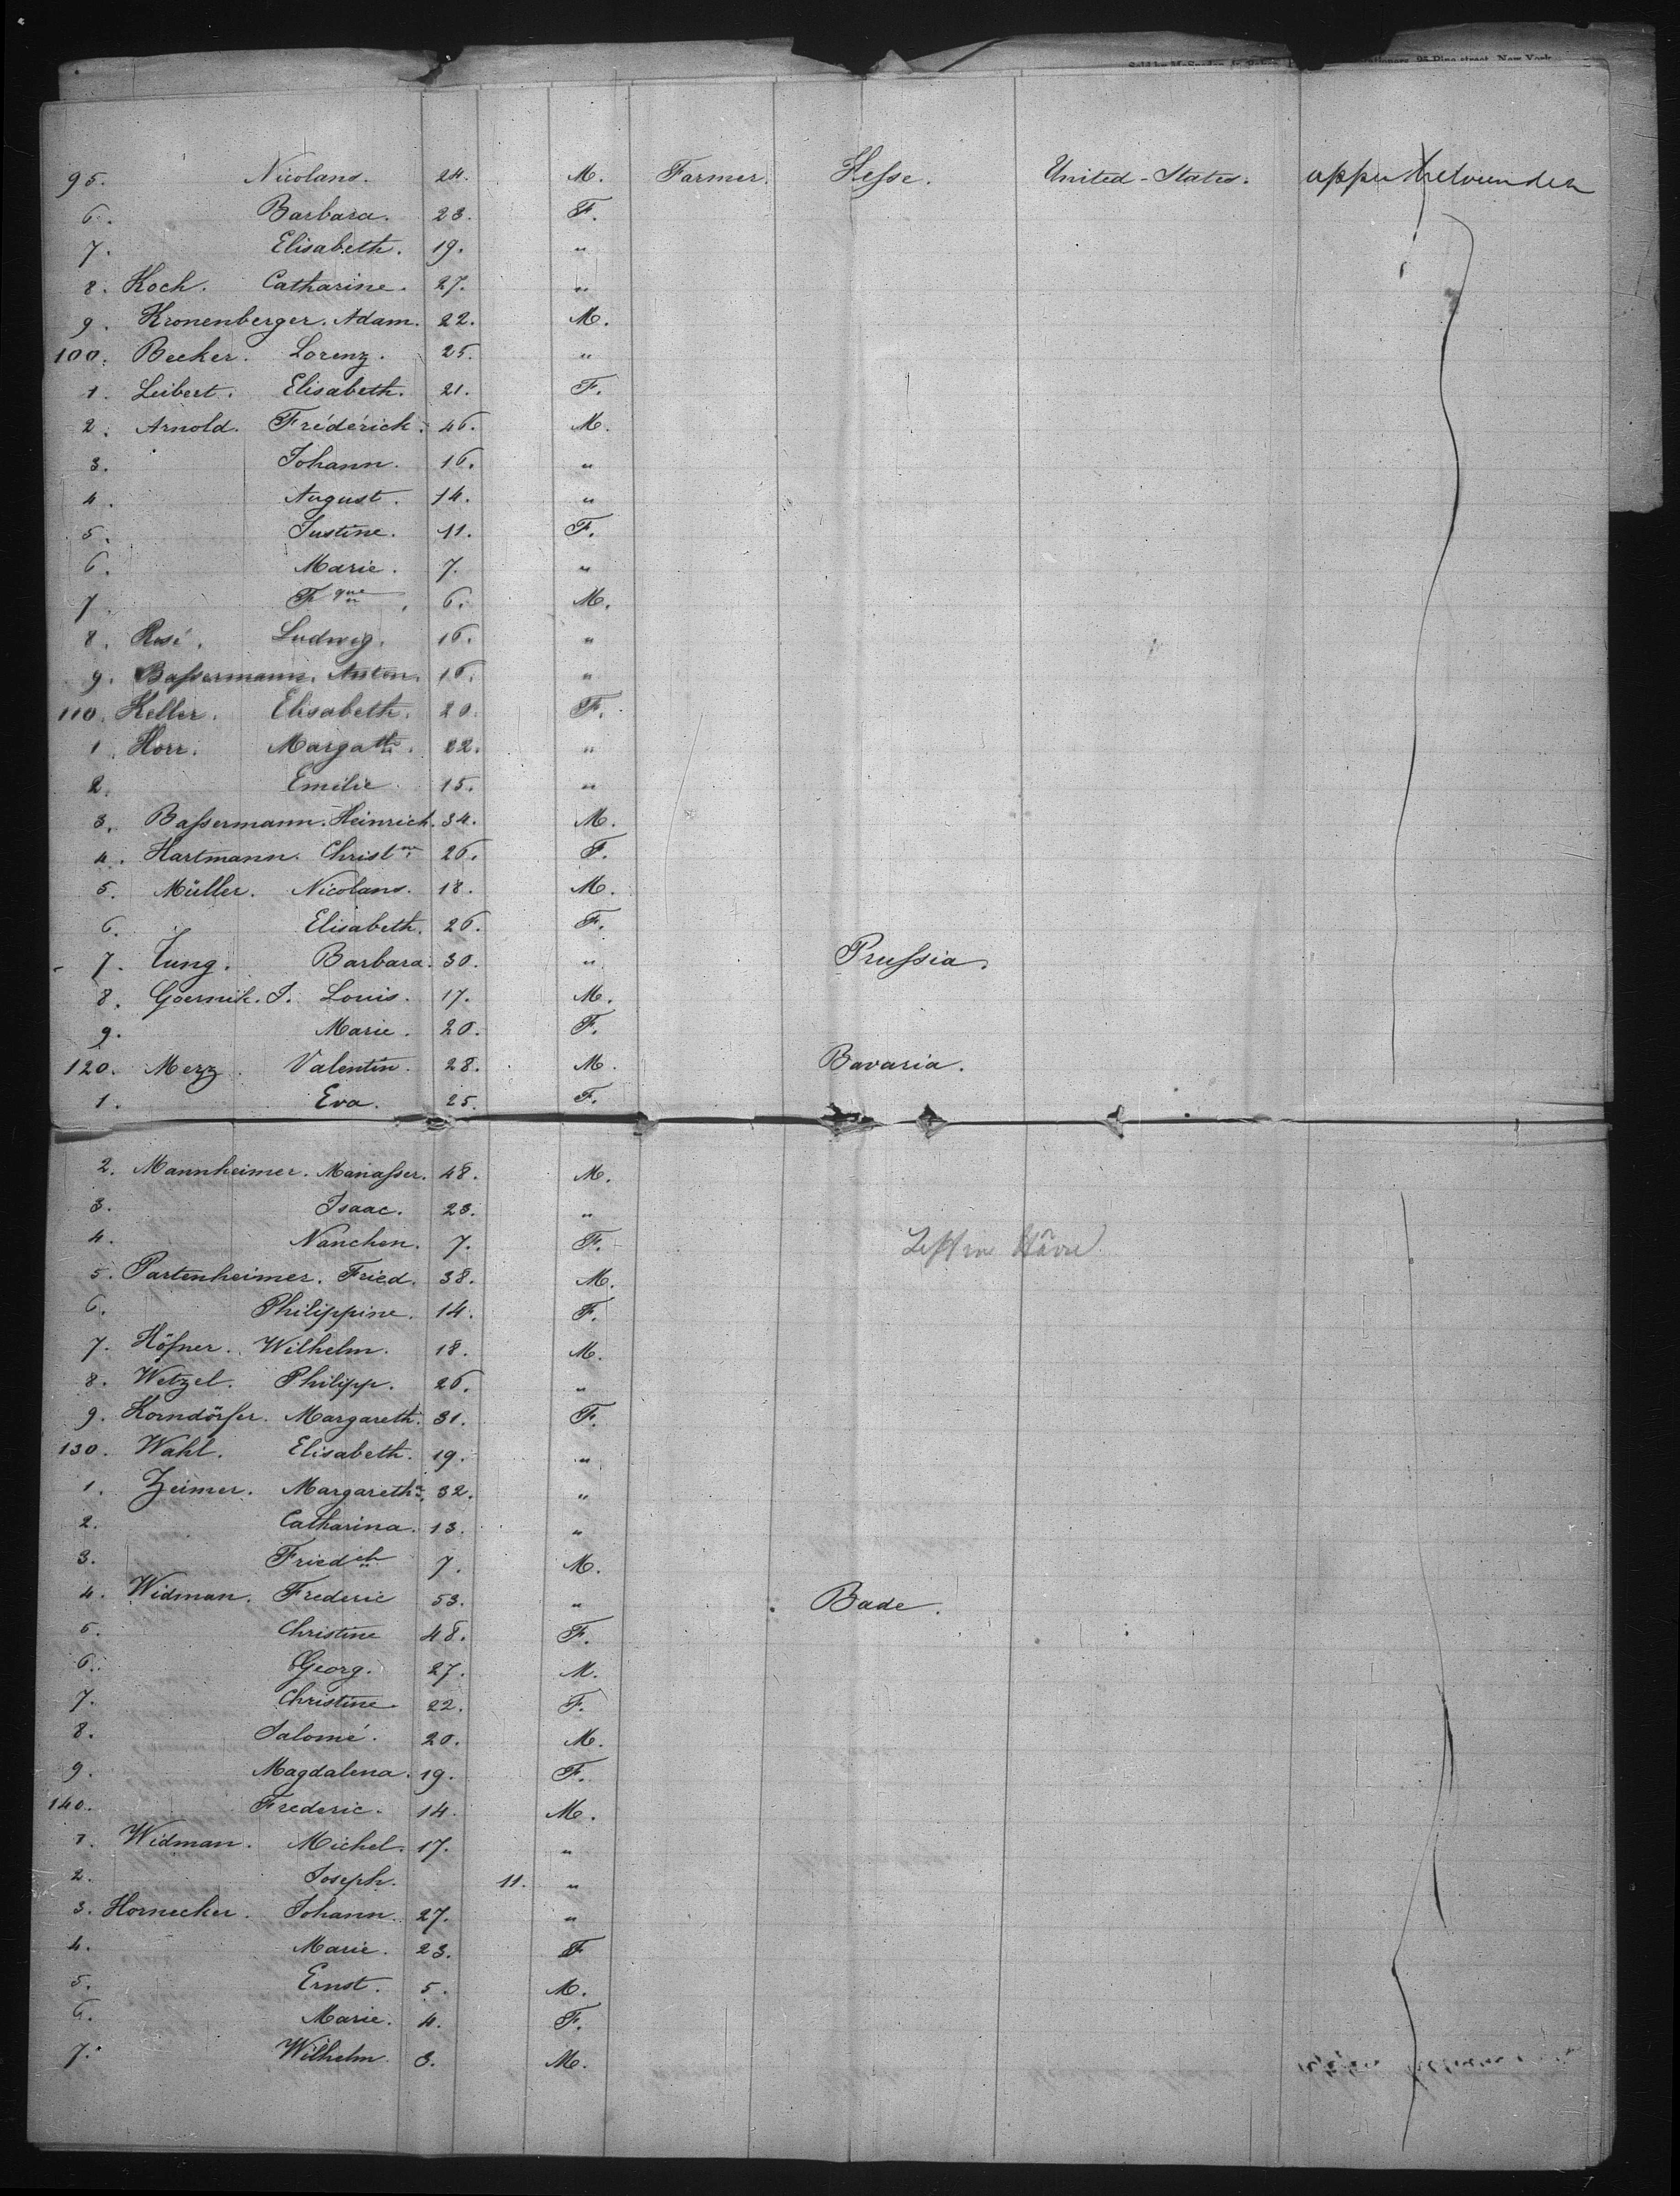 95. Nicolaus. 24. M. Farmer. Hesse. United-States.
6. Barbara. 23. F.
7. Elisabeth. 19. "
8. Koch. Catharine. 27. "
9. Kronenberger. Adam. 22. M.
100. Becker. Lorenz. 25. "
1. Leibert. Elisabeth. 21. F.
2. Arnold. Fréderick. 46. M.
3. Johann. 16. "
4. August. 14. "
5. Justine. 11. F.
6. Marie. 7. "
7. 6. M.
8. Rosé. Ludwig. 16. "
9. Bassermann. Anton. 16. "
110. Keller. Elisabeth. 20. F.
1. Horr. Margathe. 22. "
2. Emilie. 15. "
3. Bassermann. Heinrich. 34. M.
4. Hartmann. Christne 26. F.
5. Müller. Nicolaus. 18. M.
6. Elisabeth. 26. F.
7. Jung. Barbara. 30. " Prussia.
8. J. Louis. 17. M.
9. Marie. 20. F.
120. Merz. Valentin. 28. M. Bavaria.
1. Eva. 25. F.
2. Mannheimer. Manasser. 48. M.
3. Isaac. 23. "
4. Nanchen. 7. F.
5. Partenheimer. Fried. 38. M.
6. Philippine. 14. F.
7. Höfner. Wilhelm. 18. M.
8. Wetzel. Philipp. 26. "
9. Korndörfer. Margareth. 31. F.
130. Wahl. Elisabeth. 19. "
1. Zeimer. Margaretha. 32. "
2. Catharina. 13. "
3. Friedch 7. M.
4. Widman. Frederic 53. " Bade.
5. Christine 48. F.
6. Georg. 27. M.
7. Christine. 22. F.
8. Salomé. 20. M.
9. Magdalena. 19. F.
140. Frederic. 14. M.
1. Widman. Michel. 17. "
2. Joseph. 11. "
3. Hornecker. Johann. 27. "
4. Marie. 23. F
5. Ernst. 5. M.
6. Marie. 4. F.
7. Wilhelm. 3. M.